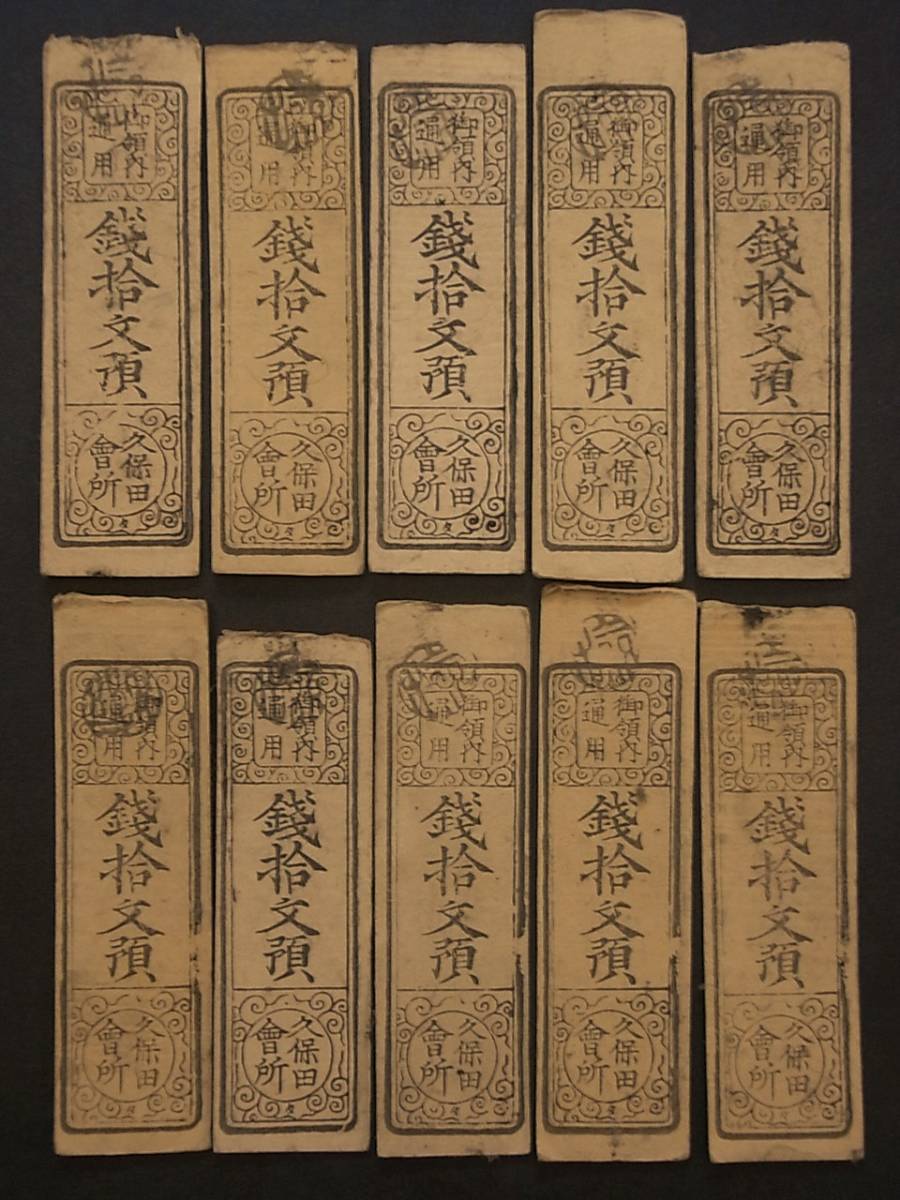 御領内
通用
錢拾文預
久保田
會所
御領内
通用
錢拾文預
久保田
會所
御領内
通用
錢拾文預
久保田
會所
御領内
通用
錢拾文預
久保田
會所
御領内
通用
錢拾文預
久保田
會所
御領内
通用
錢拾文預
久保田
會所
御領内
通用
錢拾文預
久保田
會所
御領内
通用
錢拾文預
久保田
會所
御領内
通用
錢拾文預
久保田
會所
御領内
通用
錢拾文預
久保田
會所